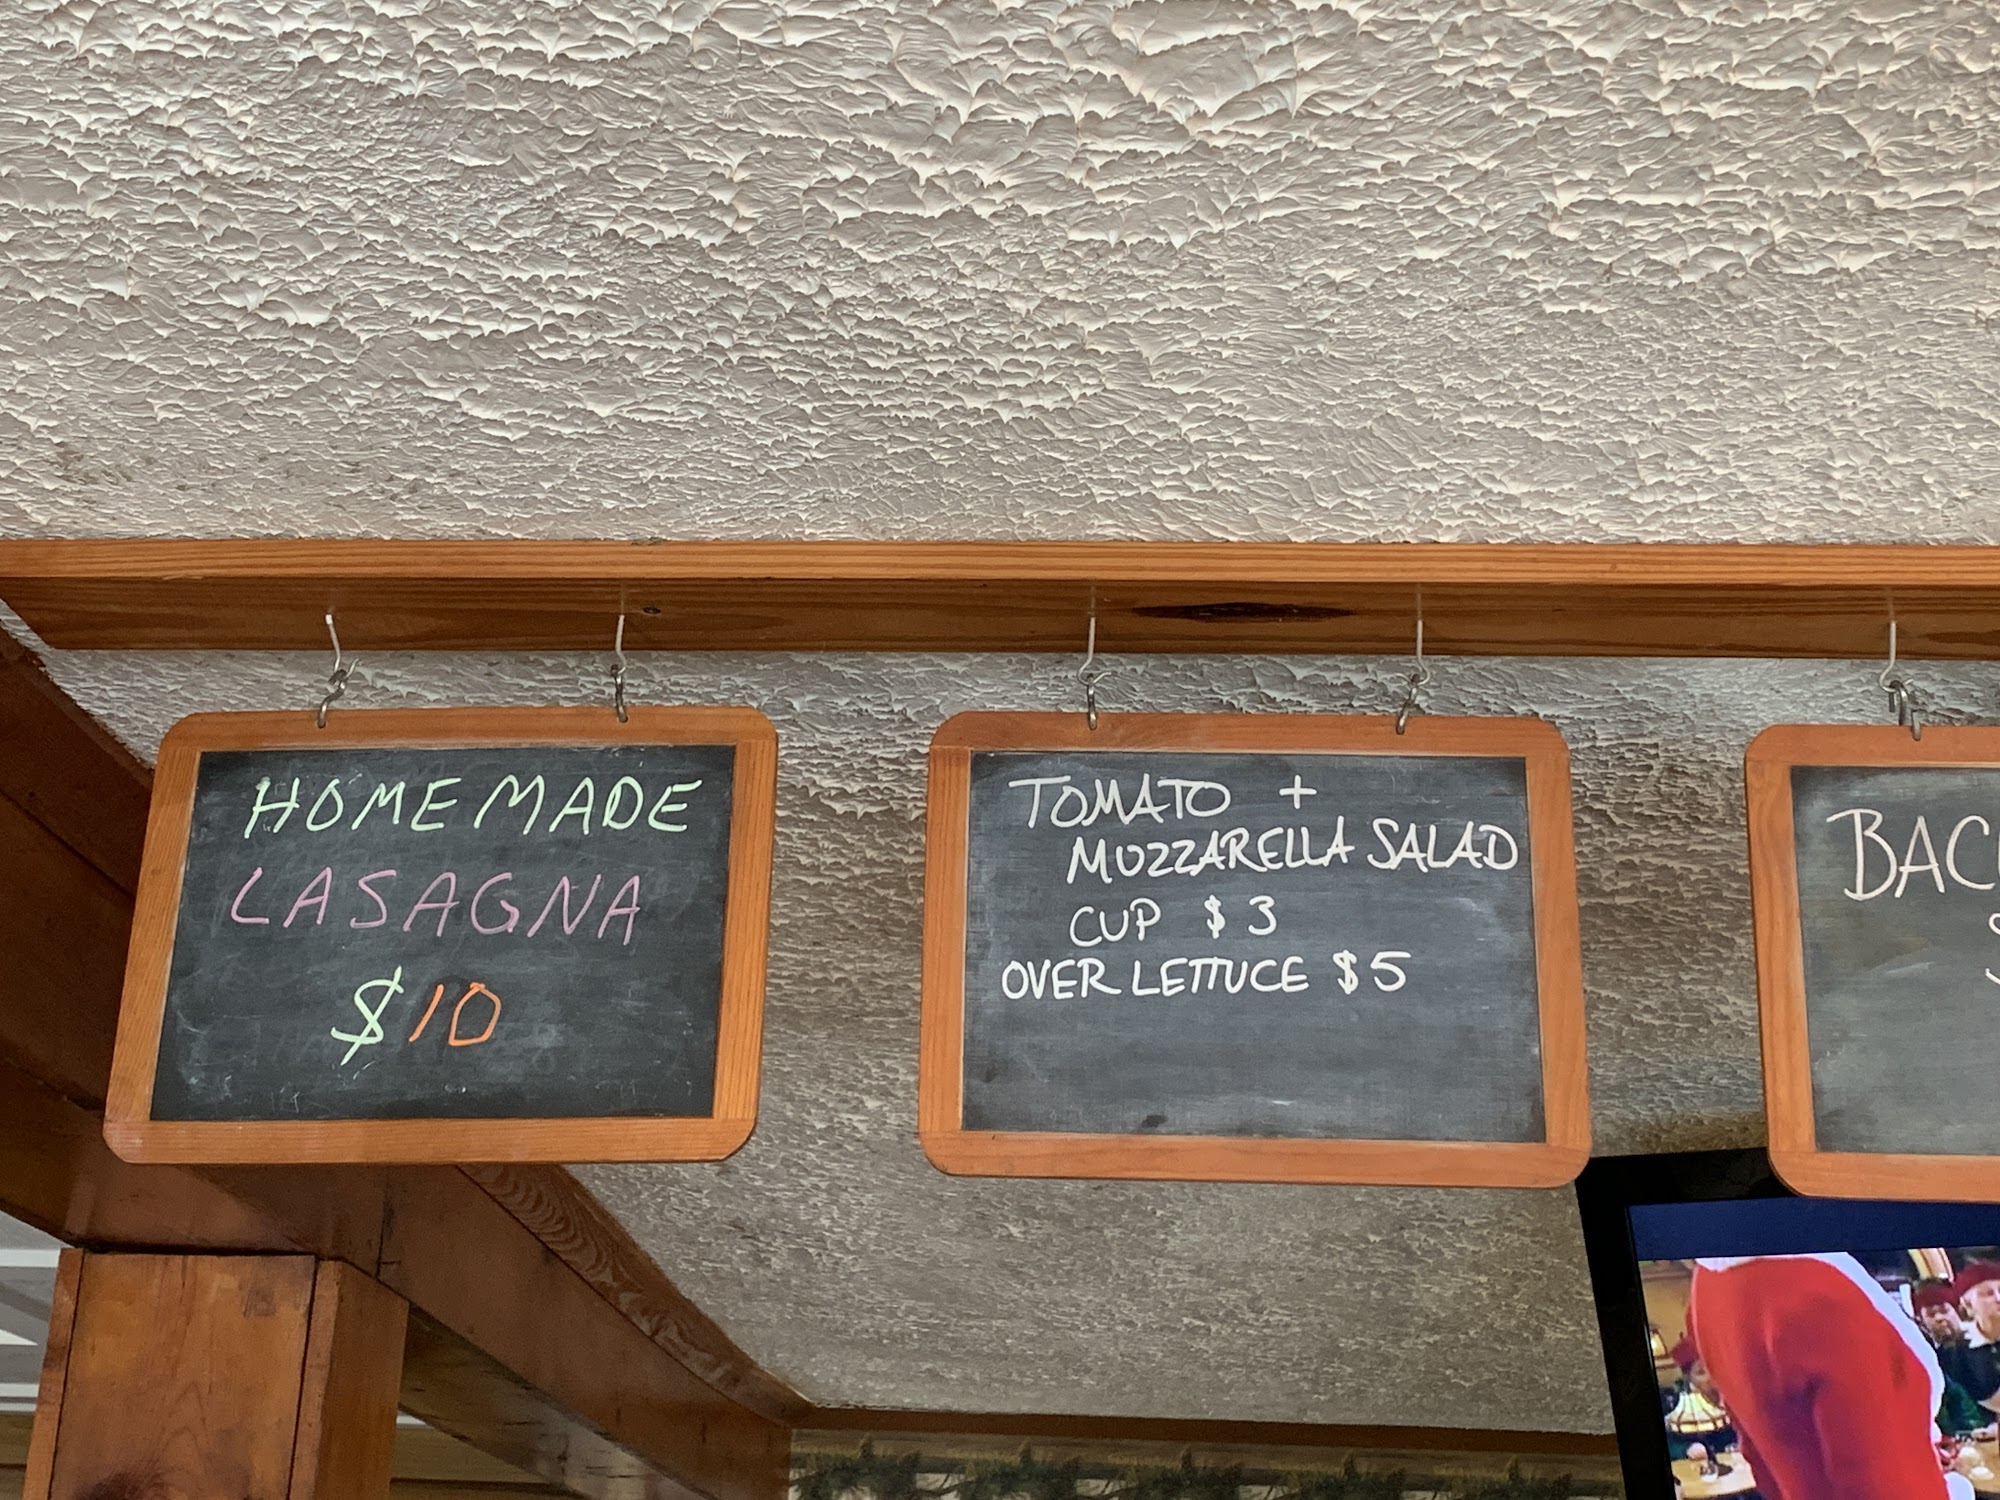 HOMEMADE
LASAGNA
$10
TOMATO +
MUZZARELLA SALAD
CUP $3
OVER LETTUCE $5